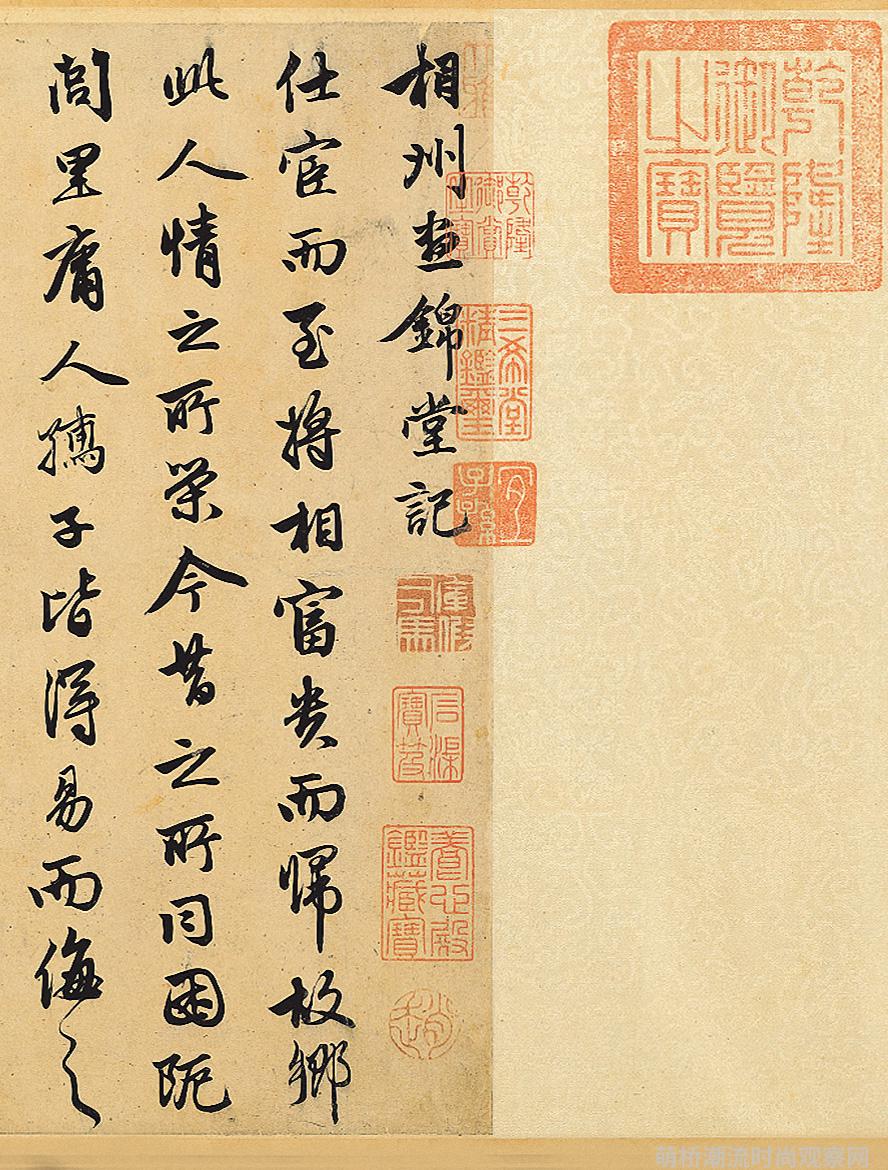 乾隆御覽之寶
三希堂精鑑璽
宜子孫
相州晝錦堂記
養心殿鑑藏寶
仕宦而至將相富貴而歸故鄉
此人情之所榮今昔之所同困阨
閭里庸人孺子皆得易而侮之
萌桥潮流时尚观察网